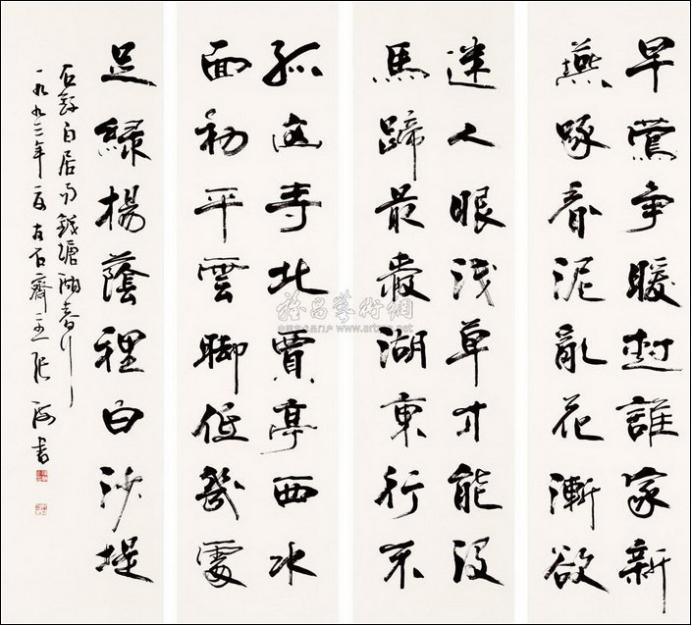 早鶯争暖樹誰家新
燕啄春泥亂花漸欲
迷人眼淺草才能没
馬蹄最愛湖東行不
孤山寺北賈亭西水
面初平雲脚低幾處
足緑楊蔭裡白沙堤
右録白居易錢塘湖春行
一九九三年夏古石齋主張海書
雅昌藝術網